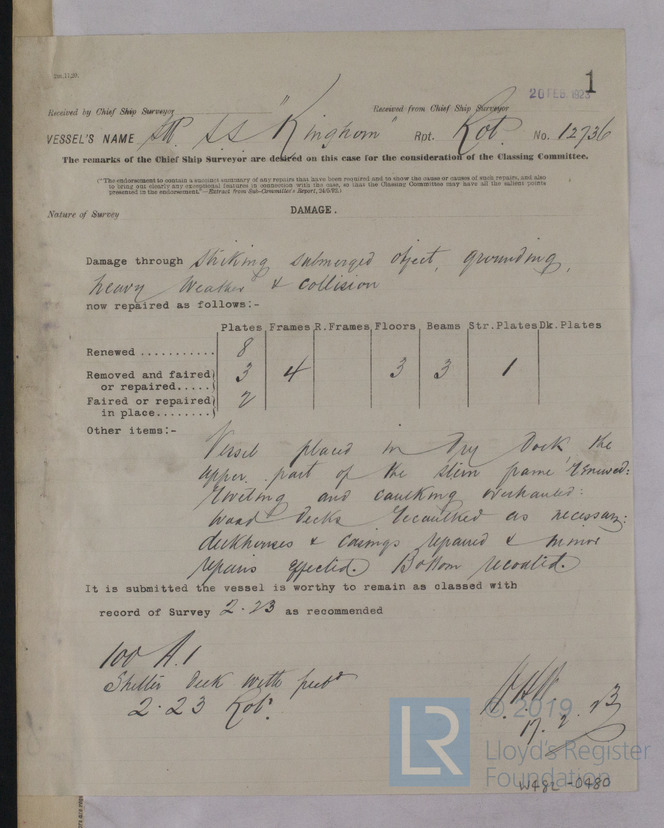 20 FEB. 1923
1
Received by Chief Ship Surveyor
Received from Chief Ship Surveyor
VESSEL'S NAME S.S "Kinghorn" Rpt. Rot. No. 12736
The remarks of the Chief Ship Surveyor are desired on this case for the consideration of the Classing Committee.
("The endorsement to contain a succinct summary of any repairs that have been required and to show the cause or causes of such repairs, and also
to bring out clearly any exceptional features in connection with the case, so that the Classing Committee may have all the salient points
presented in the endorsement."—Extract from Sub-Committee's Report,
Nature of Survey
DAMAGE.
Damage through striking submerged object, grounding,
heavy weather & collision
now repaired as follows:-
Plates Frames R.Frames Floors Beams Str.Plates Dk.Plates
Renewed ........... 8
Removed and faired
or repaired..... 3 4 3 3 1
Faired or repaired
in place........ 2
Other items:-
Vessel placed in Dry Dock the
upper part of the stern frame renewed:
riveting and caulking overhauled:
Wood decks recaulked as necessary:
deckhouses & casings repaired & minor
repairs effected. Bottom recoated.
It is submitted the vessel is worthy to remain as classed with
record of Survey 2.23 as recommended
100 A.1
Shelter deck with freebd
2.23 Rot.
17.2.23
© 2019
LR
Lloyd's Register
Foundation
W482-0480